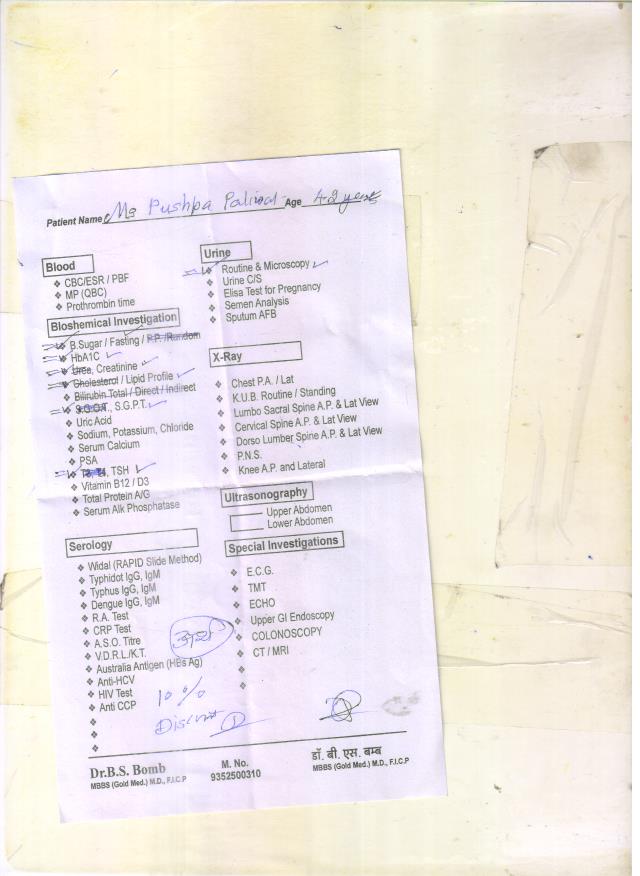 Patient Name Ms Pushpa Paliwal Age 42 years
Blood
❖ CBC/ESR / PBF
❖ MP (QBC)
❖ Prothrombin time
Bioshemical Investigation
❖ B.Sugar / Fasting / P.P. /Random
❖ HbA1C ✓
❖ Urea, Creatinine ✓
❖ Cholesterol / Lipid Profile ✓
❖ Bilirubin Total / Direct / Indirect
❖ S.G.O.T., S.G.P.T. ✓
❖ Uric Acid
❖ Sodium, Potassium, Chloride
❖ Serum Calcium
❖ PSA
❖ TSH ✓
❖ Vitamin B12 / D3
❖ Total Protein A/G
❖ Serum Alk Phosphatase
Serology
❖ Widal (RAPID Slide Method)
❖ Typhidot IgG, IgM
❖ Typhus IgG, IgM
❖ Dengue IgG, IgM
❖ R.A. Test
❖ CRP Test
❖ A.S.O. Titre
❖ V.D.R.L./K.T.
❖ Australia Antigen (HBs Ag)
❖ Anti-HCV
❖ HIV Test
❖ Anti CCP
10 %
Discount
Urine
❖ Routine & Microscopy ✓
❖ Urine C/S
❖ Elisa Test for Pregnancy
❖ Semen Analysis
❖ Sputum AFB
X-Ray
❖ Chest P.A. / Lat
❖ K.U.B. Routine / Standing
❖ Lumbo Sacral Spine A.P. & Lat View
❖ Cervical Spine A.P. & Lat View
❖ Dorso Lumber Spine A.P. & Lat View
❖ P.N.S.
❖ Knee A.P. and Lateral
Ultrasonography
Upper Abdomen
Lower Abdomen
Special Investigations
❖ E.C.G.
❖ TMT
❖ ECHO
❖ Upper GI Endoscopy
❖ COLONOSCOPY
❖ CT / MRI
Dr.B.S. Bomb
MBBS (Gold Med.) M.D., F.I.C.P
M. No.
9352500310
डॉ. बी. एस. बम्ब
MBBS (Gold Med.) M.D., F.I.C.P